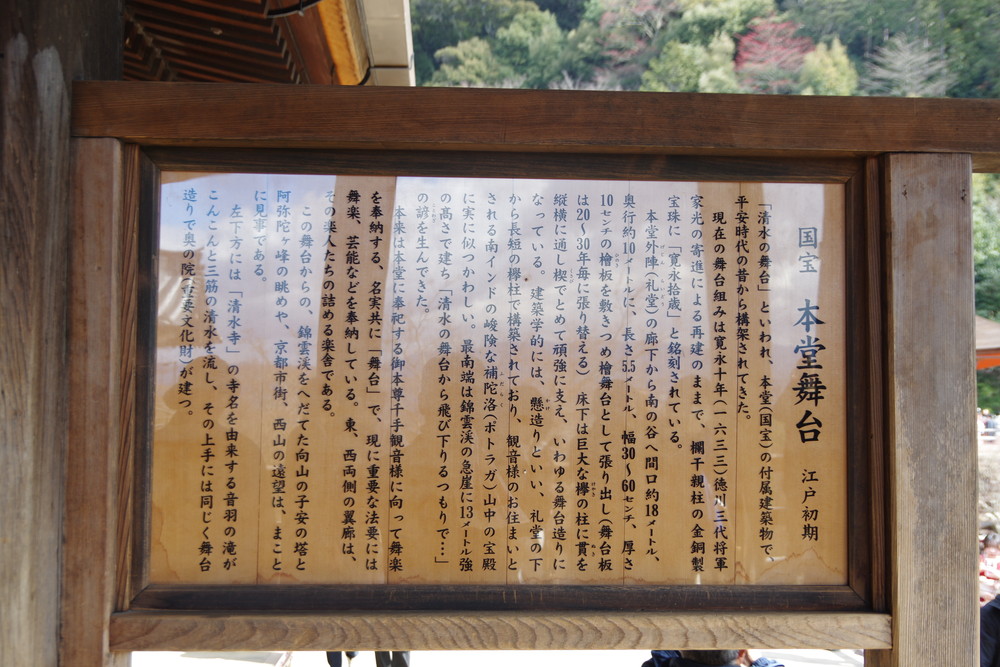 国宝　本堂舞台　江戸初期
「清水の舞台」といわれ、本堂(国宝)の付属建築物で、
平安時代の昔から構架されてきた。
現在の舞台組みは寛永十年(一六三三)徳川三代将軍
家光の寄進による再建のままで、欄干親柱の金銅製
宝珠に「寛永拾歳」と銘刻されている。
本堂外陣(礼堂)の廊下から南の谷へ間口約18メートル、
奥行約10メートルに、長さ5.5メートル、幅30〜60センチ、厚さ
10センチの檜板を敷きつめ檜舞台として張り出し(舞台板
は20〜30年毎に張り替える)床下は巨大な欅の柱に貫を
縦横に通し楔でとめて頑強に支え、いわゆる舞台造りに
なっている。建築学的には、懸造りといい、礼堂の下
から長短の欅柱で構築されており、観音様のお住まいと
される南インドの峻険な補陀洛(ポトラガ)山中の宝殿
に実に似つかわしい。最南端は錦雲渓の急崖に13メートル強
の高さで建ち「清水の舞台から飛び下りるつもりで…」
の諺を生んできた。
本来は本堂に奉祀する御本尊千手観音様に向って舞楽
を奉納する、名実共に「舞台」で、現に重要な法要には
舞楽、芸能などを奉納している。東、西両側の翼廊は、
その楽人たちの詰める楽舎である。
この舞台からの、錦雲渓をへだてた向山の子安の塔と
阿弥陀ヶ峰の眺めや、京都市街、西山の遠望は、まこと
に見事である。
左下方には「清水寺」の寺名を由来する音羽の滝が
こんこんと三筋の清水を流し、その上手には同じく舞台
造りで奥の院(重要文化財)が建つ。